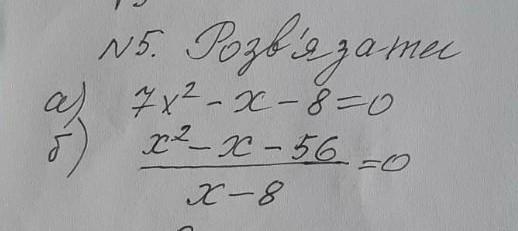 №5. Розв'язати
а) 7x² - x - 8 = 0
б) (x² - x - 56)/(x - 8) = 0